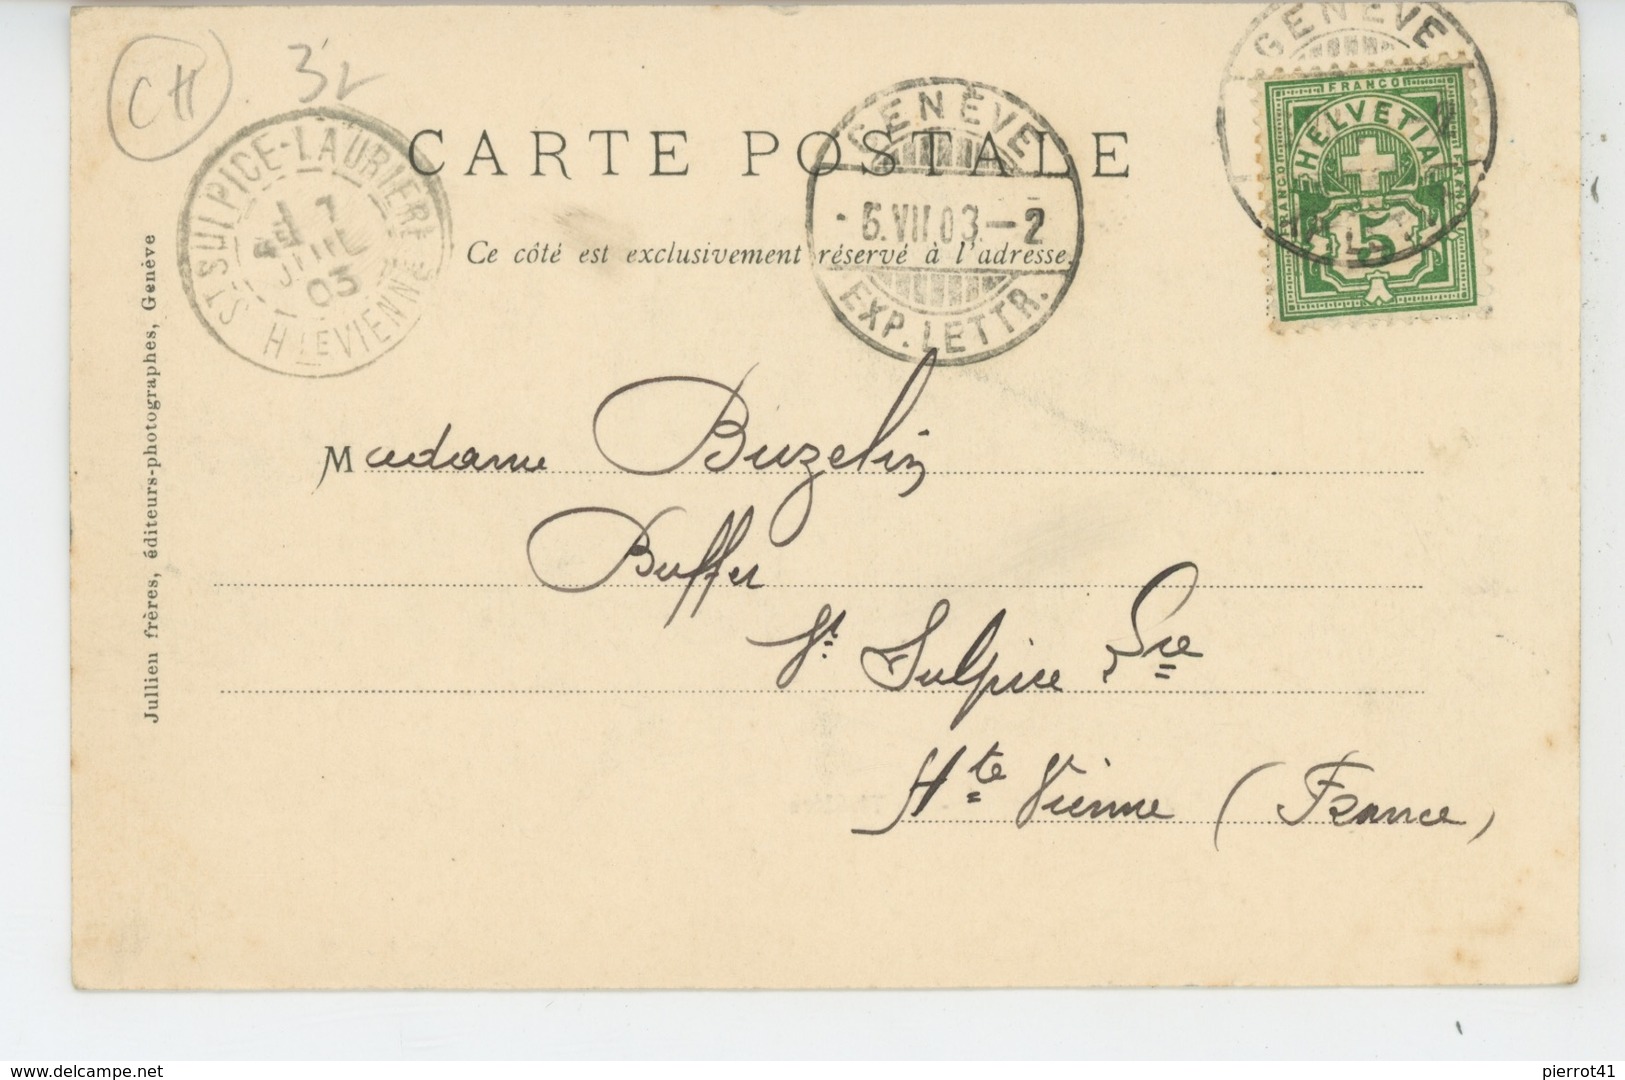 CH
3
CARTE POSTALE
Ce côté est exclusivement réservé à l'adresse.
ST SULPICE-LAURIERE
7
JUIL
03
HTE VIENNE
GENÈVE
6.VII.03–2
EXP. LETTR.
GENÈVE
FRANCO
HELVETIA
FRANCO
FRANCO
5
Jullien frères, éditeurs-photographes, Genève
Madame Buzelin
Buffet
St Sulpice Lre
Hte Vienne (France)
Delcampe.net
pierrot41